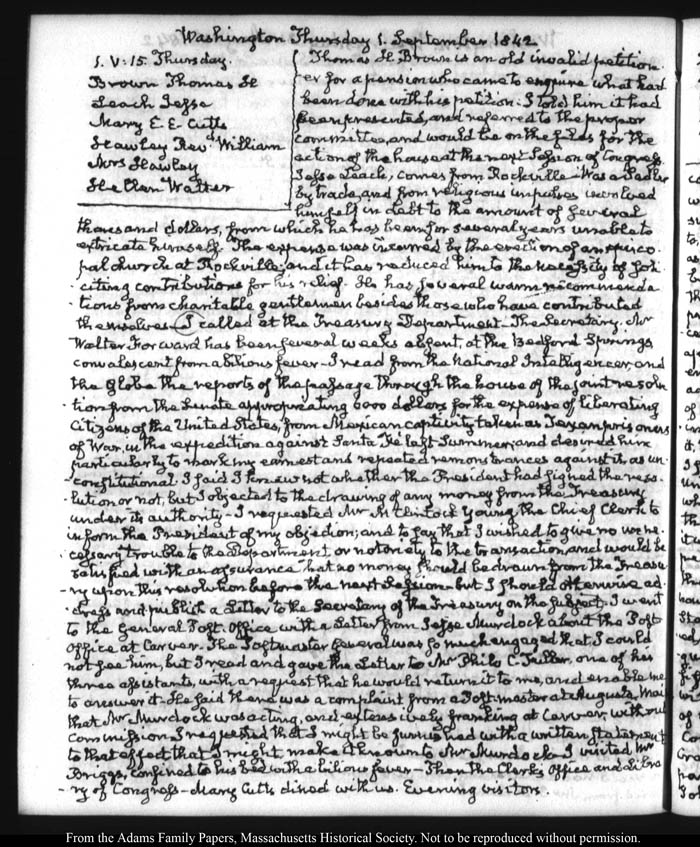 Washington Thursday 1. September 1842
1. V:15. Thursday.
Brown Thomas H
Leach Jesse
Mary E. E. Cutts
Hawley Revd. William
Mrs Hawley
Hellen Walter
Thomas H. Brown is an old invalid petition
er for a pension who came to enquire what had
been done with his petition. I told him it had
been presented, and referred to the proper
committee, and would be on the files for the
action of the house at the next Session of Congress
Jesse Leach, comes from Rockville. Was a
by trade, and from religious impulses involved
himself in debt to the amount of several
thousand dollars, from which he has been for several years unable to
extricate himself. The expense was incurred by the erection of an episco
pal church at Rockville, and it has reduced him to the necessity of soli
-citing contributions for his relief. He has several warm recommenda
-tions from charitable gentlemen besides those who have contributed
themselves. I called at the Treasury Department. The Secretary. Mr
Walter Forward has been several weeks absent, at the Bedford Springs
convalescent from a bilious fever. I read from the National Intelligencer, and
the Globe the reports of the passage through the house of the joint resolu
-tion from the Senate appropriating 6000 dollars for the expense of liberating
Citizens of the United States, from Mexican captivity taken as Texan prisoners
of War, in the expedition against Santa Fe last Summer, and desired him
particularly to mark my earnest and repeated remonstrances against it, as un-
-constitutional. I said I knew not whether the President had signed the reso-
lution or not, but I objected to the drawing of any money from the Treasury
under its authority. I requested Mr McClintock Young the Chief Clerk to
inform the President of my objection; and to say that I wished to give no unne-
cessary trouble to the Department or notoriety to the transaction, and would be
satisfied with an assurance that no money should be drawn from the Treasu
-ry upon this resolution before the next Session. but I should otherwise ad-
-dress and publish a Letter to the Secretary of the Treasury on the subject. I went
to the General Post-Office with a Letter from Jesse Murdock about the Post
office at Carver. The Postmaster General was so much engaged that I could
not see him, but I read and gave the Letter to Mr Philo C. Fuller, one of his
three assistants, with a request that he would return it to me, and enable me
to answer it. He said there was a complaint from a Postmaster at Augusta,
that Mr Murdock was acting, and extensively franking at Carver, without
Commission. I requested that I might be furnished with a written statement
to that effect that I might make it known to Mr Murdock. I visited Mr
Briggs, confined to his bed with a bilious fever. Then the Clerk's Office and Libra
-ry of Congress. Mary Cutts dined with us. Evening visitors.
From the Adams Family Papers, Massachusetts Historical Society. Not to be reproduced without permission.